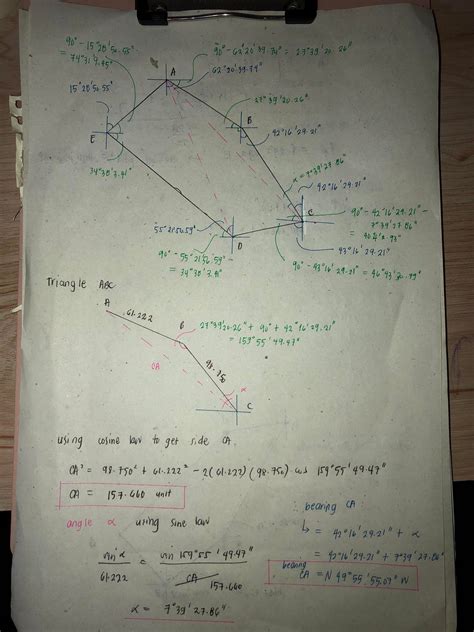 90° - 15°28'50.55"
= 74°31'9.45"
90° - 62°20'39.74" = 27°39'20.26"
62°20'39.74"
A
15°28'50.55"
27°39'20.26"
B
42°16'29.21"
E
α = 7°39'27.86"
34°38'3.41"
42°16'29.21"
C
90° - 42°16'29.21" -
7°39'27.86"
55°21'56.59"
D
43°16'29.21"
90° - 55°21'56.59"
= 34°38'3.41"
90° - 43°16'29.21" = 46°43'30.79"
Triangle ABC
A
61.222
B
27°39'20.26" + 90° + 42°16'29.21"
= 159°55'49.47"
CA
98.750
α
C
using cosine law to get side CA.
CA² = 98.750² + 61.222² - 2(61.222)(98.750) cos 159°55'49.47"
CA = 157.660 unit
angle α using sine law
sin α / 61.222 = sin 159°55'49.47" / CA 157.660
α = 7°39'27.86"
bearing CA:
↳ = 42°16'29.21" + α
= 42°16'29.21" + 7°39'27.86"
bearing
CA = N 49°55'55.07" W